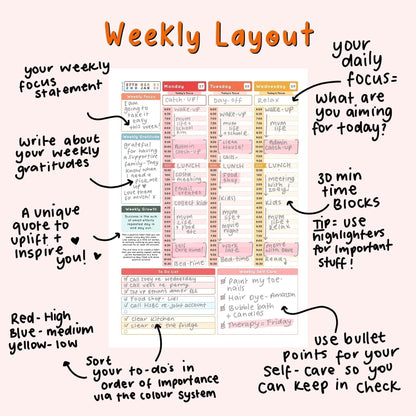 Weekly Layout
your weekly
focus
statement
write about
your weekly
gratitudes
A unique
quote to
uplift +
inspire
you!
Red-High
Blue- medium
yellow-low
Sort
your to-do's in
order of importance
via the colour system
your
daily
focus=
what are
you aiming
for today?
30 min
time
Blocks
Tip= use
highlighters
for important
stuff!
use bullet
points for your
self-care so you
can keep in check
27TH DEC
2ND JAN
Weekly Focus
I am
going to
take it
easy
this week
Weekly Gratitudes
Grateful
for having
a supportive
family. They
know when
I need a
pick me
up
Weekly Growth
Success is the sum
of small efforts
repeated day in
and day out.
Monday
Today's Focus
Catch-up!
wake-up
mum
life +
school
Admin
catch-up
LUNCH
costa
meeting
Email
collect kids
mum
life
+ food
Bed-time
Tuesday
Today's Focus
Day-off
wake-up
mum
life
+ school
clean
house!
LUNCH
Food
shop
kids!
mum
life +
mode
Bed-time
Wednesday
Today's Focus
Relax
wake-up
mum
life
Admin
catch-up
LUNCH
meeting
with
kids!
mum
life +
Relax
Ready
To Do List
call
call vets re penny
Food shop - Lidl
call HSBC re joint account
clear kitchen
clear out the fridge
Weekly Self Care
Paint my toe-
nails
Hair dye - Amazon
Bubble bath
+ candles
Therapy = Friday